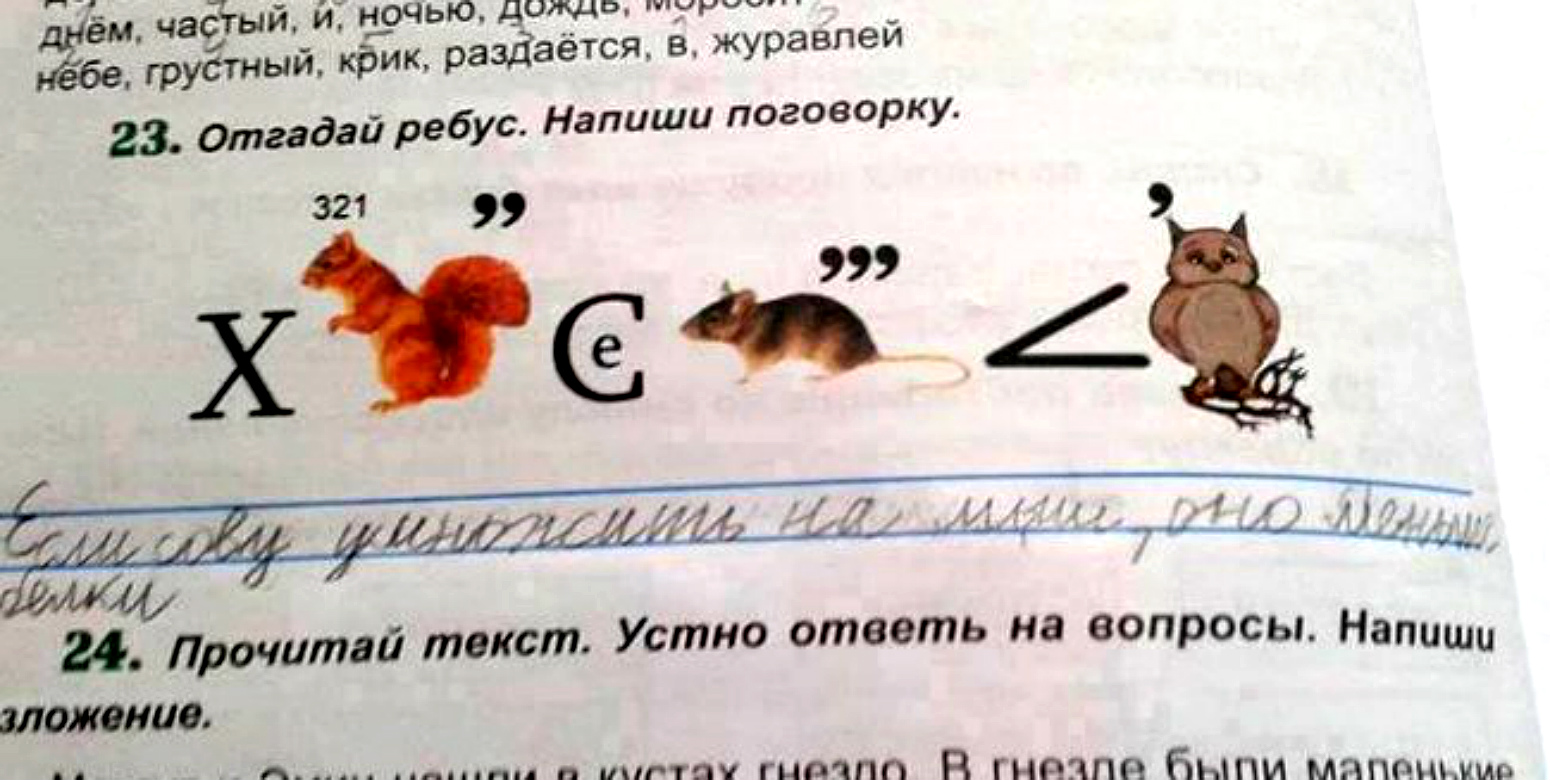 днём, частый, и, ночью, дождь, моросит
небе, грустный, крик, раздаётся, в, журавлей
23. Отгадай ребус. Напиши поговорку.
321 ,, ,,, ,
Х С е <
Если сову умножить на мыши, оно меньше
белки
24. Прочитай текст. Устно ответь на вопросы. Напиши
зложение.
нашли в кустах гнездо. В гнезде были маленькие